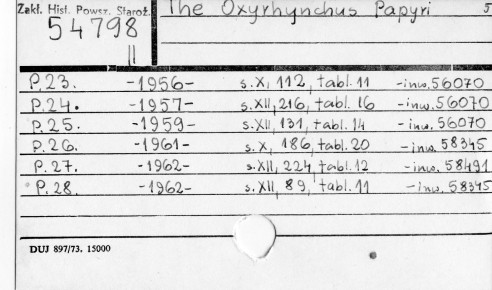 Zakł. Hist. Powsz. Staroż. The Oxyrhynchus Papyri 5
54798
||
P.23. -1956- s.X, 112, tabl. 11 -inw. 56070
P.24. -1957- s.XII, 216, tabl. 16 -inw. 56070
P.25. -1959- s.XII, 131, tabl. 14 -inw. 56070
P.26. -1961- s.X, 186, tabl. 20 -inw. 58345
P.27. -1962- s.XII, 224, tabl. 12 -inw. 58491
P.28. -1962- s.XII, 89, tabl. 11 -inw. 58345
DUJ 897/73. 15000